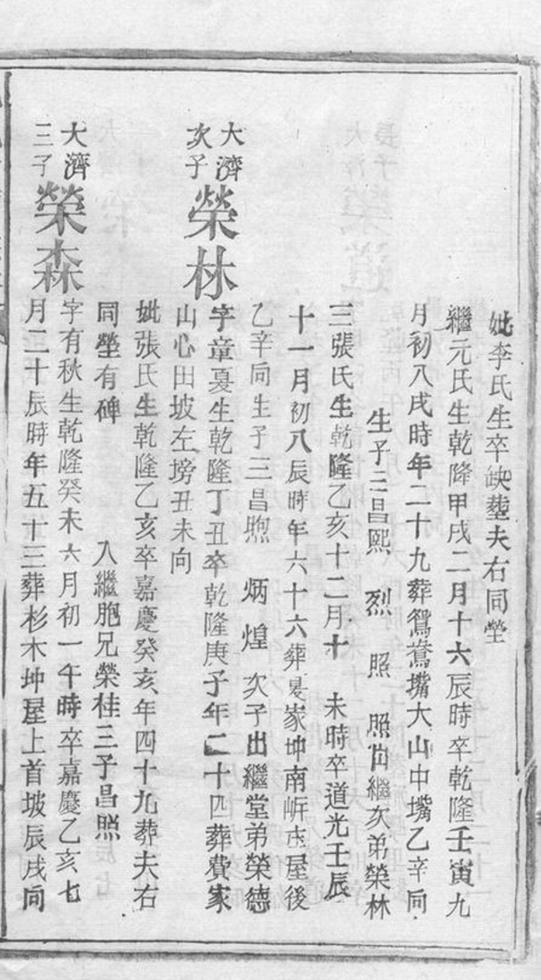 妣李氏生卒缺塟夫右同塋
繼元氏生乾隆甲戌二月十六辰時卒乾隆壬寅九
月初八戌時年二十九葬鴛鴦嘴大山中嘴乙辛向
生子三昌熙 烈 照 照出繼次弟榮林
三張氏生乾隆乙亥十二月十 未時卒道光壬辰
十一月初八辰時年六十六葬夏家坤南㟁古屋後
乙辛向生子三昌煦 炳 煌 次子出繼堂弟榮德
大濟次子榮林
字童夏生乾隆丁丑卒乾隆庚子年二十四葬費家
山心田坡左塝丑未向
妣張氏生乾隆乙亥卒嘉慶癸亥年四十九葬夫右
同塋有碑 入繼胞兄榮桂三子昌照
大濟三子榮森
字有秋生乾隆癸未六月初一午時卒嘉慶乙亥七
月二十辰時年五十三葬杉木坤屋上首坡辰戌向